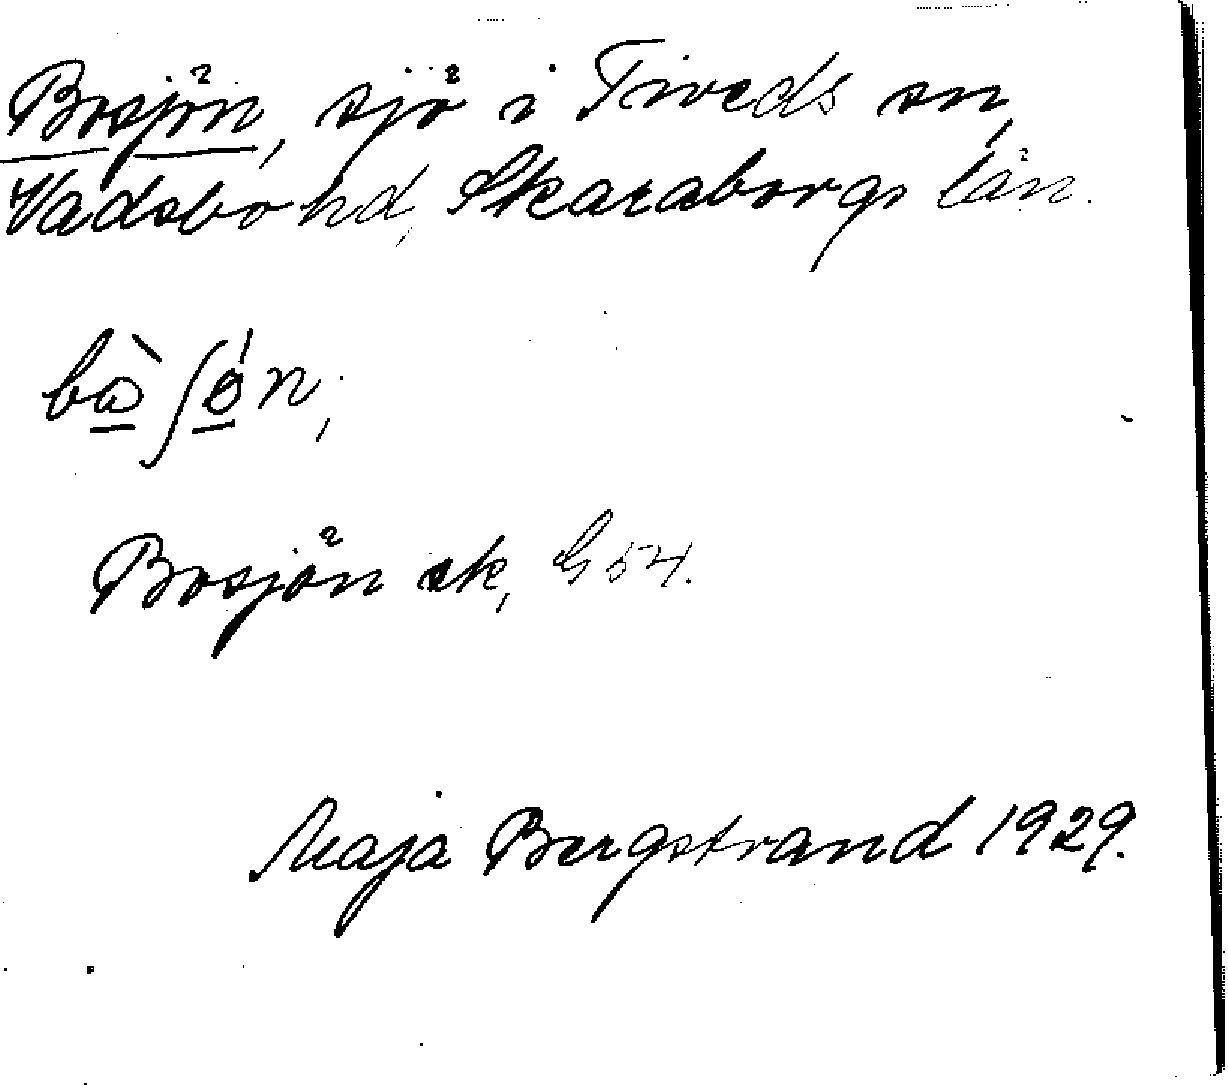 Bosjön, sjö i Tiveds sn,
Vadsbo hd, Skaraborgs län.
bὼʃǿn,
Bosjön ek, G 54.
Maja Bergstrand 1929.